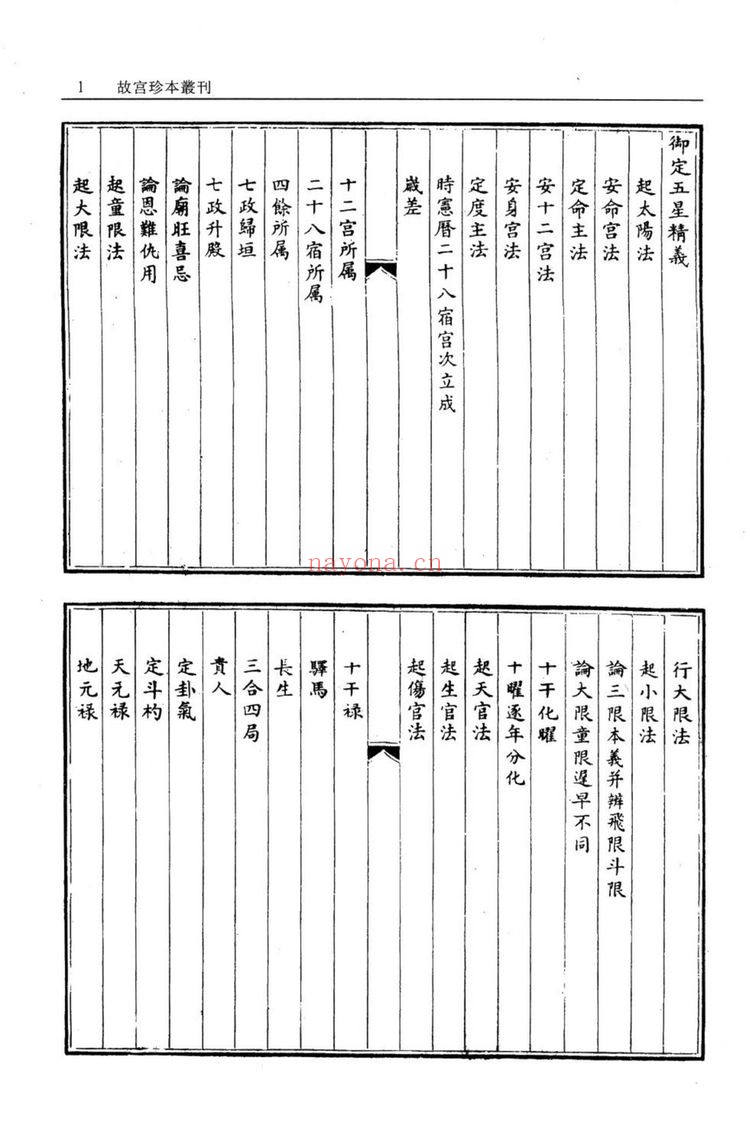 1 故宫珍本叢刊
御定五星精義
起太陽法
安命宫法
定命主法
安十二宫法
安身宫法
定度主法
時憲曆二十八宿宫次立成
嵗差
十二宫所属
二十八宿所属
四餘所属
七政歸垣
七政升殿
論廟旺喜忌
論恩難仇用
起童限法
起大限法
nayona.cn
行大限法
起小限法
論三限本義并辨飛限斗限
論大限童限遲早不同
十干化曜
十曜逐年分化
起天官法
起生官法
起傷官法
十干禄
驛馬
長生
三合四局
貴人
定卦氣
定斗杓
天元禄
地元禄